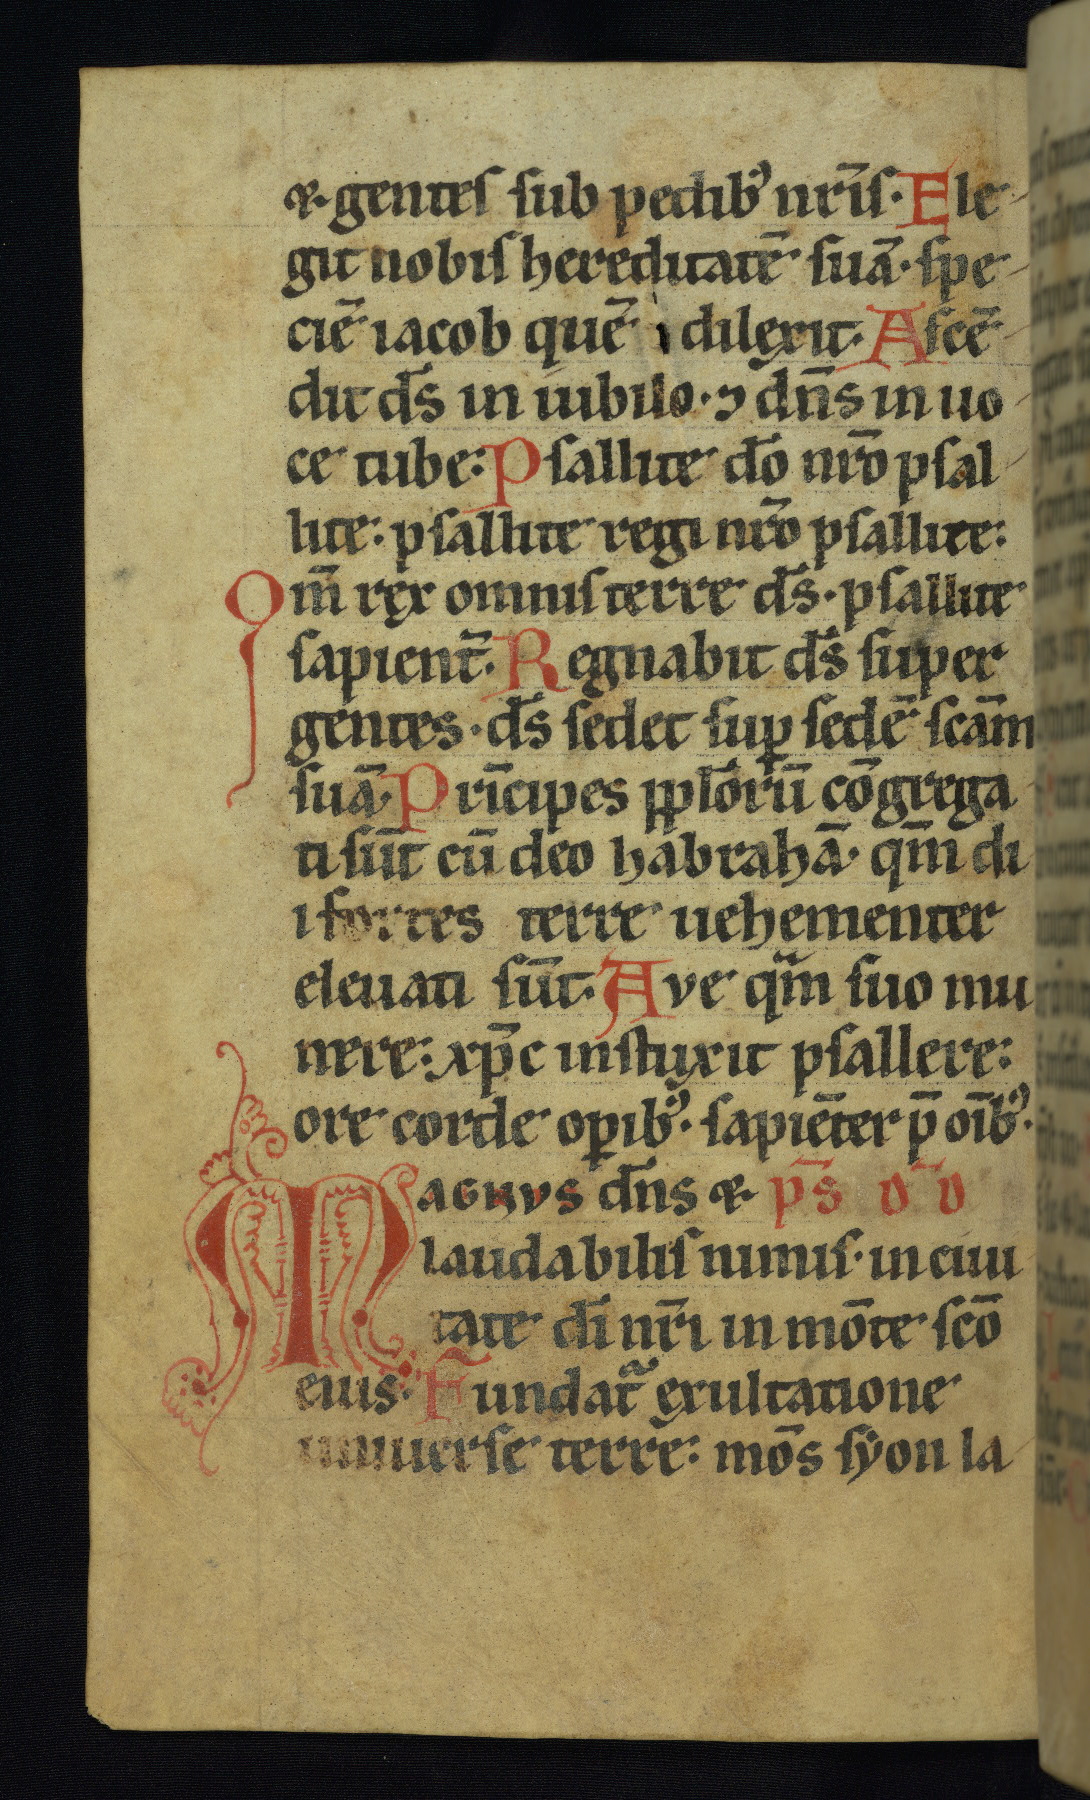 &. gentes sub pedib᾽ nr̄is. Ele
git nobis hereditatē suā. spe
ciē iacob quē dilexit. Ascē
dit ds̄ in iubilo. ⁊ dn̄s in uo
ce tube: Psallite dō nr̄o psal
lite: psallite regi nr̄o psallite:
Qm̄ rex omnis terre ds̄. psallite
sapient̄. Regnabit ds̄ super
gentes. ds̄ sedet suꝑ sedē scām
suā. Prīncipes ꝓplōrū cōgrega
ti sūt cū deo habrahā. qm̄ di
i fortes terre uehementer
eleuati sūt. Ave qm̄ suo mu
nere: xp̄c instuxit psallere:
ore corde oꝑib᾽. sapiēter p̄ oīb᾽.
Magnvs dn̄s &. ps̄
laudabilis nimis. in ciui
tate dī nr̄i in mōte scō
eius. Fundat᷑ exultatione
uniuerse terre: mōs sẏon la